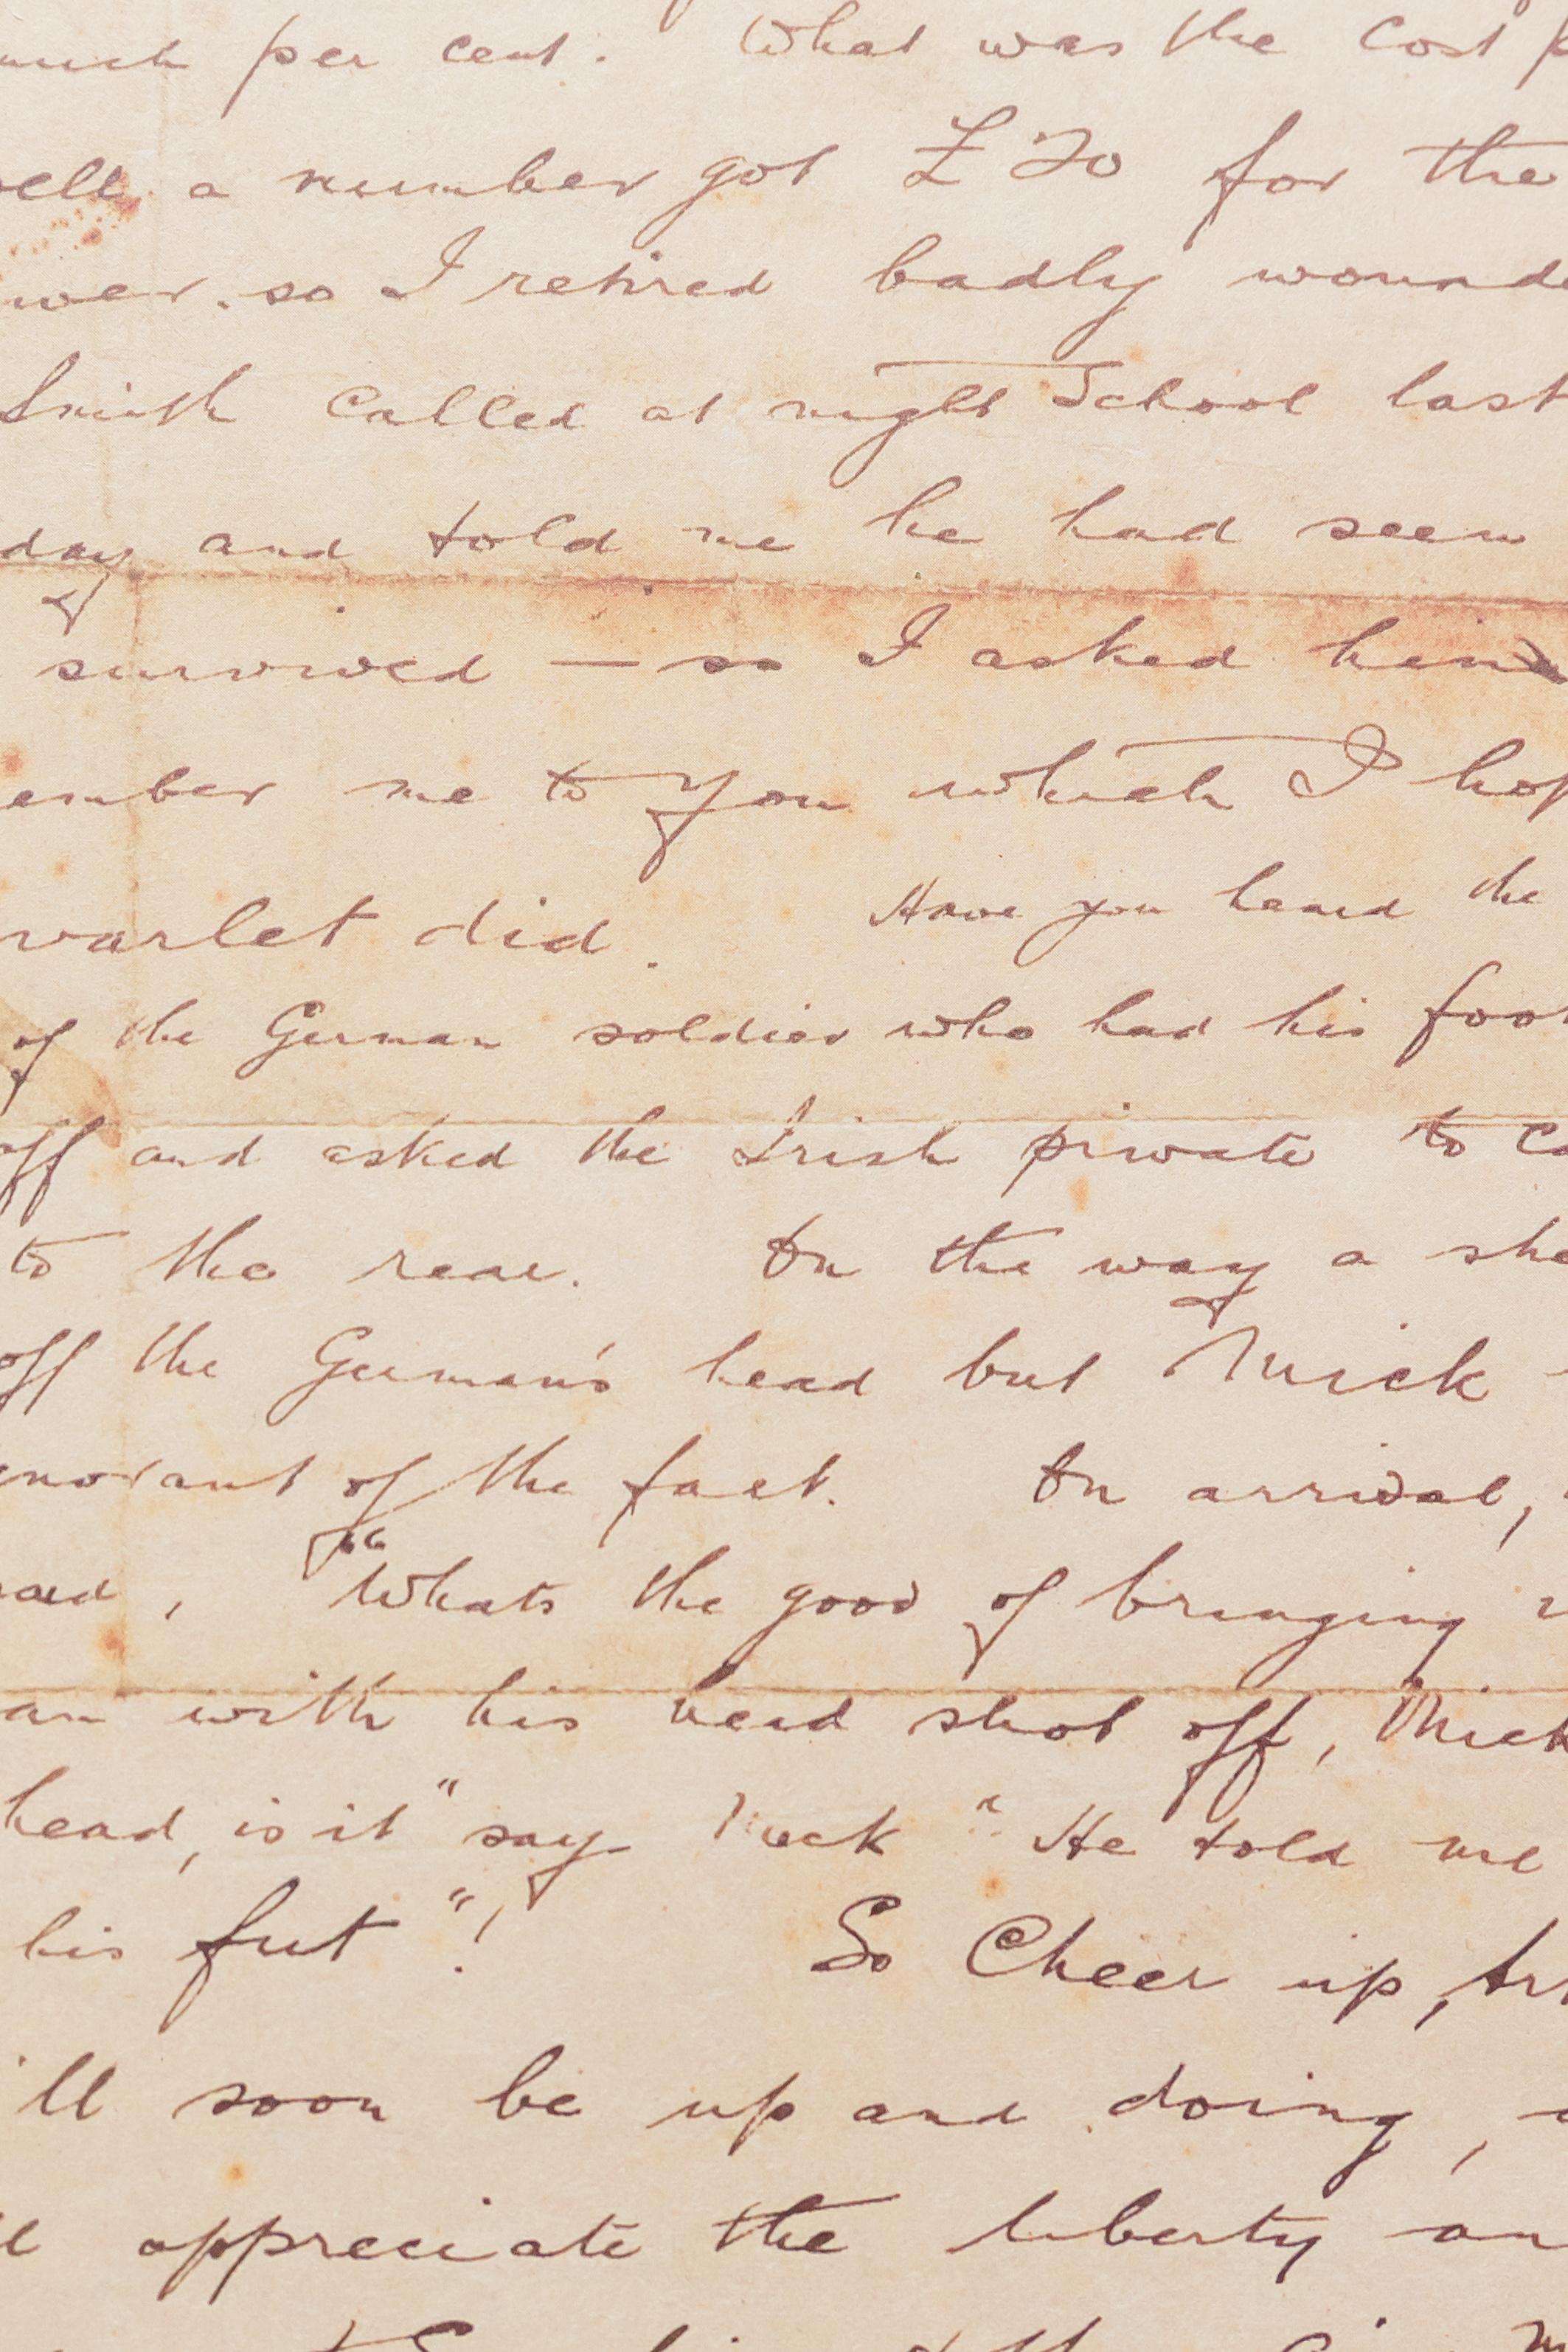 much per cent. What was the Cost p
well a number got £20 for the
wer. so I retired badly wounde
Smith Called at night School last
day and told me he had seen
survived — so I asked him
ember me to you which I hop
varlet did. Have you heard the
of the German soldier who had his foot
off and asked the Irish private to ca
to the rear. On the way a she
off the German's head but Mick
gnorant of the fact. On arrival,
"Whats the good of bringing
an with his head shot off, Mick
head, is it" say Mick " He told me
his fut"!  So Cheer up, Art
'll soon be up and doing,
appreciate the liberty an